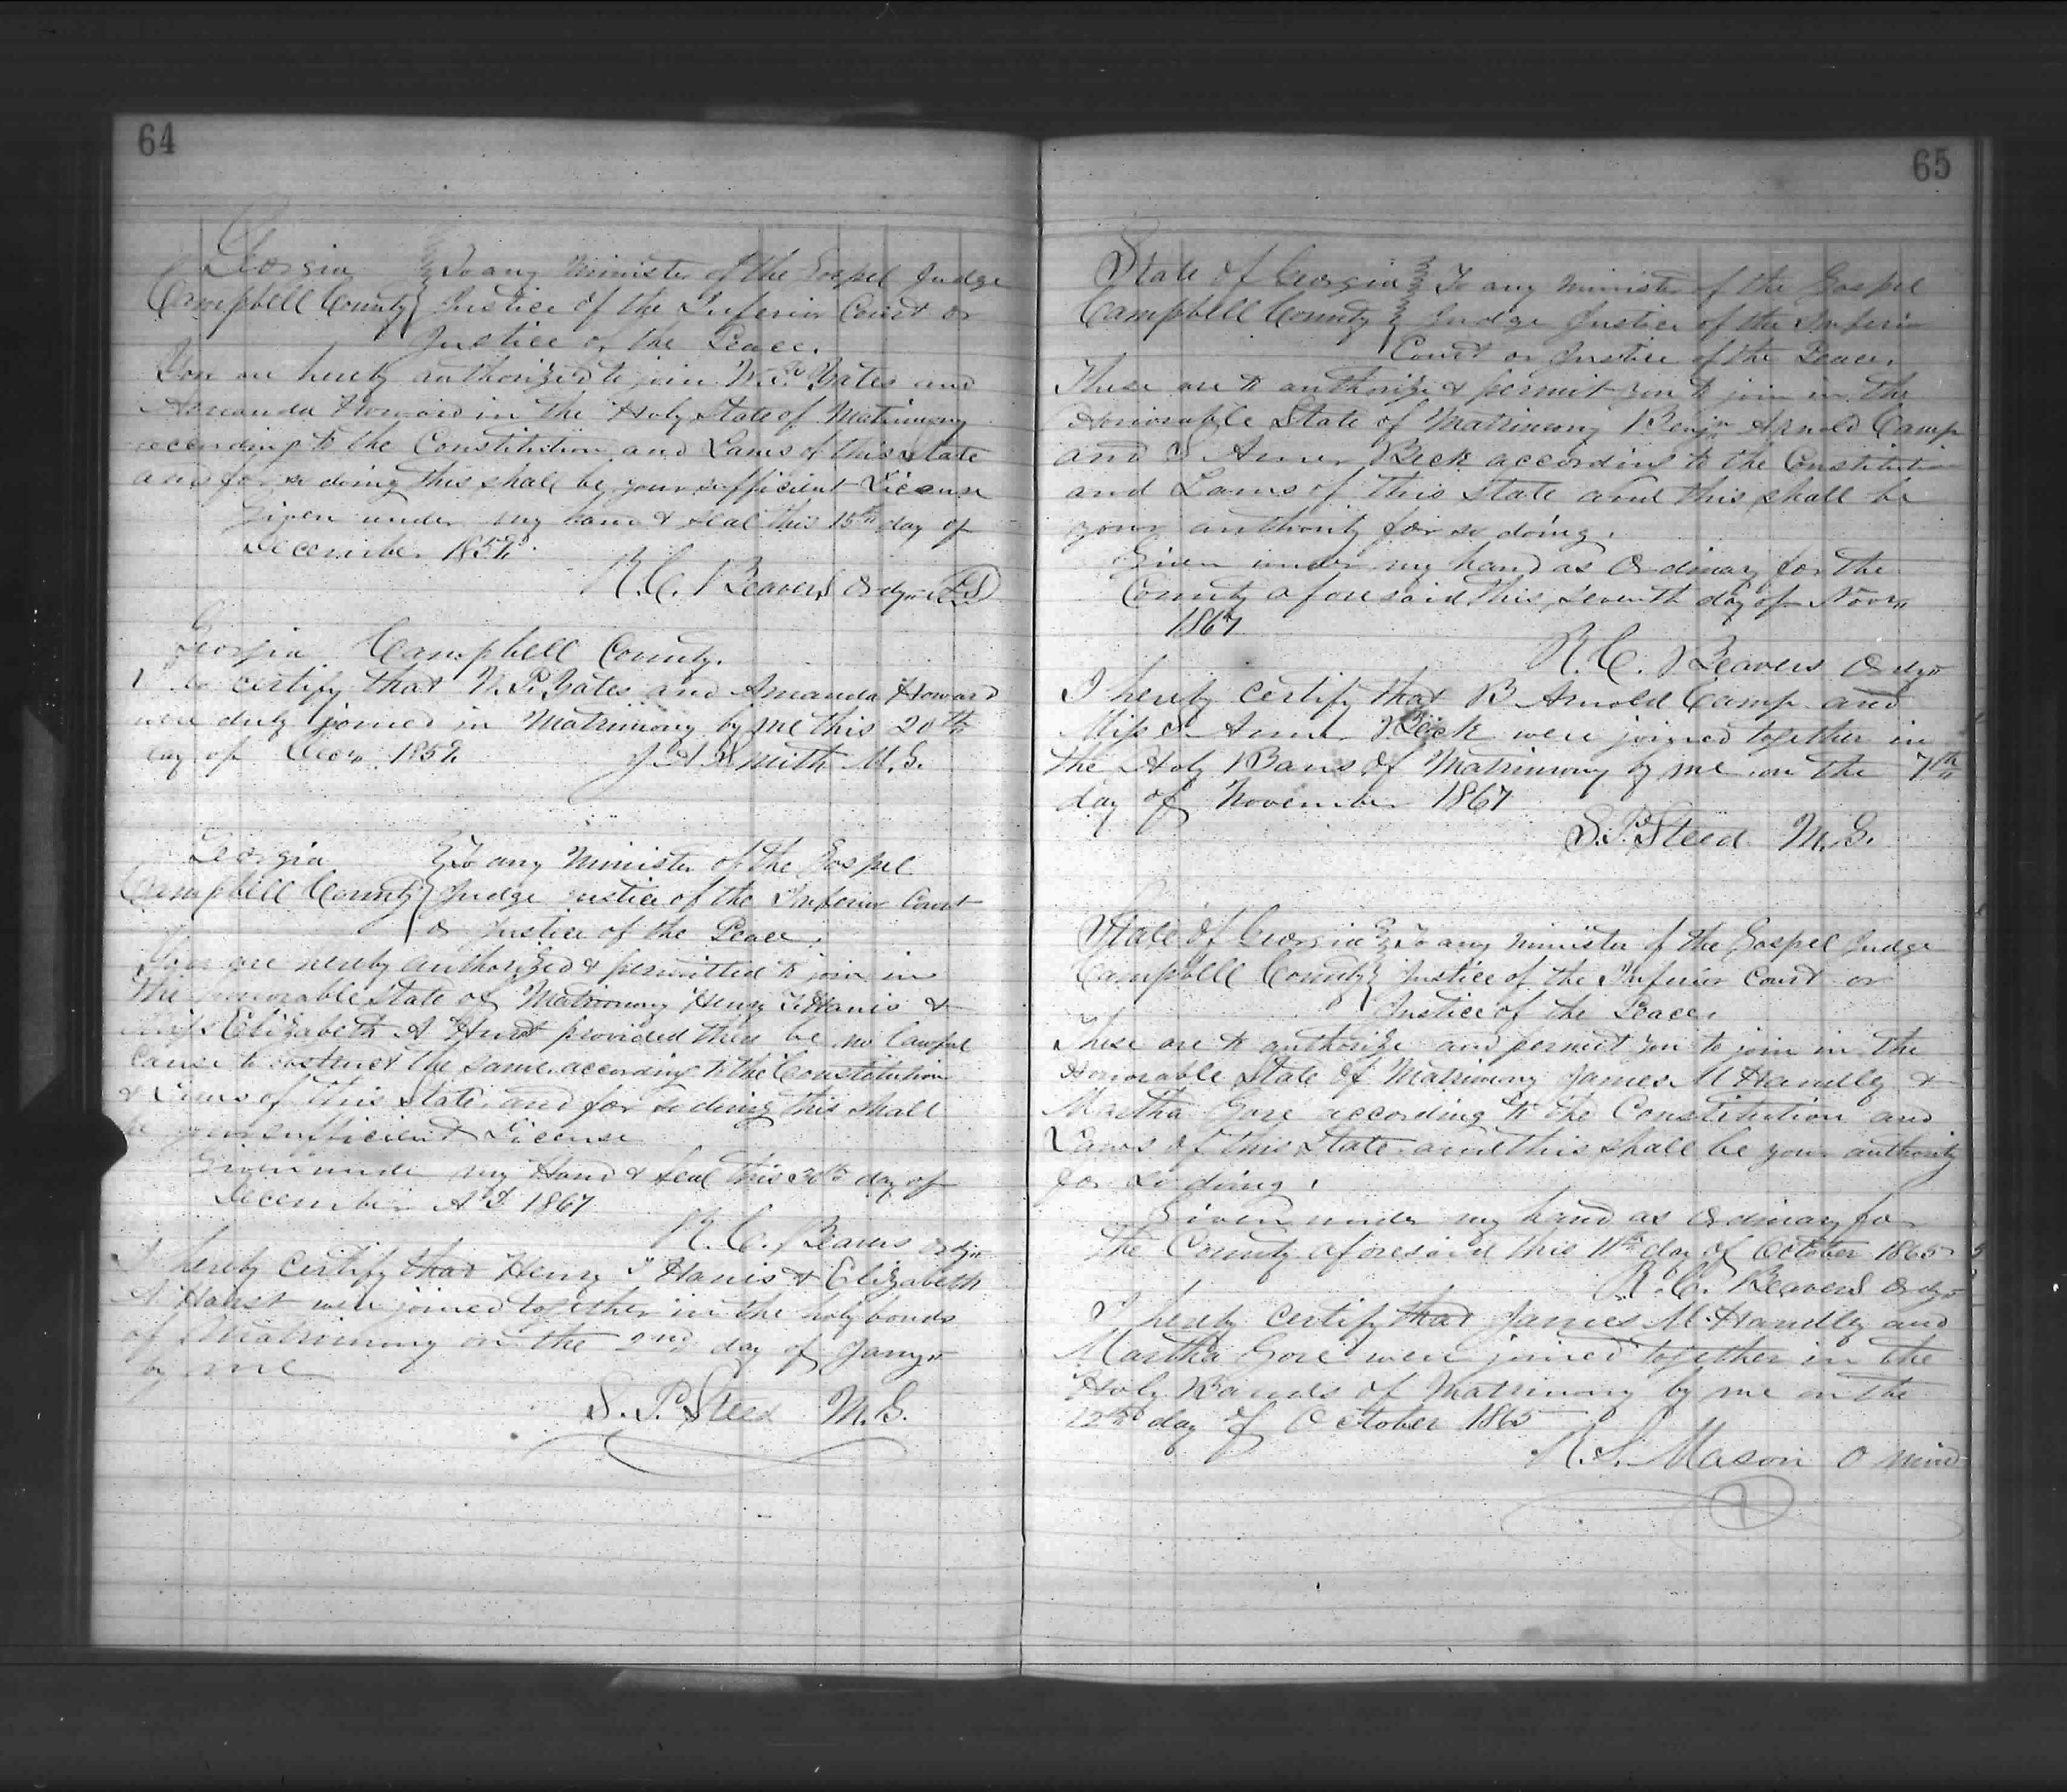 64
Georgia } To any Minister of the Gospel Judge
Campbell County } Justice of the Inferior Court or
Justice of the Peace.
You are hereby authorized to join Yates and
Amanda Howard in the Holy State of Matrimony
according to the Constitution and Laws of this State
and for so doing this shall be your sufficient License
Given under my hand & seal this 15th day of
December
R. C. Beavers Ordy LS
Georgia Campbell County.
certify that N. P. Yates and Amanda Howard
were duly joined in Matrimony by me this 20th
day of Decr
Smith M. G.
Georgia } To any Minister of the Gospel
Campbell County } Judge Justice of the Inferior Court
or Justice of the Peace.
You are hereby authorized & permitted to join in
the honorable State of Matrimony Henry Harris &
Miss Elizabeth A Hurst provided there be no lawful
cause to obstruct the same according to the Constitution
& Laws of this State and for so doing this shall
be your sufficient License
Given under my Hand & Seal this 30th day of
December A.D. 1867
R. C. Beavers Ordy
I hereby certify that Henry Harris & Elizabeth
A were joined together in the holy bonds
of Matrimony on the 2nd day of Jany
by me
S. P. Steed M. G.
65
State of Georgia } To any minister of the Gospel
Campbell County } Judge Justice of the Inferior
Court or Justice of the Peace.
These are to authorize & permit you to join in the
Honorable State of Matrimony Benjn Arnold Camp
and S. Beck according to the Constitution
and Laws of this State and this shall be
your authority for so doing.
Given under my hand as Ordinary for the
County aforesaid, this Seventh day of Novr
1867
R. C. Beavers Ordy
I hereby certify that B Arnold Camp and
Miss S. Beck were joined together in
the Holy Bans of Matrimony by me on the 7th
day of November 1867
S. P. Steed M. G.
State of Georgia } To any minister of the Gospel Judge
Campbell County } Justice of the Inferior Court or
Justice of the Peace.
These are to authorize and permit you to join in the
Honorable State of Matrimony James M Handley &
Martha Gore according to the Constitution and
Laws of this State and this shall be your authority
for so doing.
Given under my hand as Ordinary for
the County aforesaid this 11th day of October 1865
R. C. Beavers Ordy
I hereby certify that James M. Handley and
Martha Gore were joined together in the
Holy Bands of Matrimony by me on the
12th day of October 1865
R. S. Mason O Min